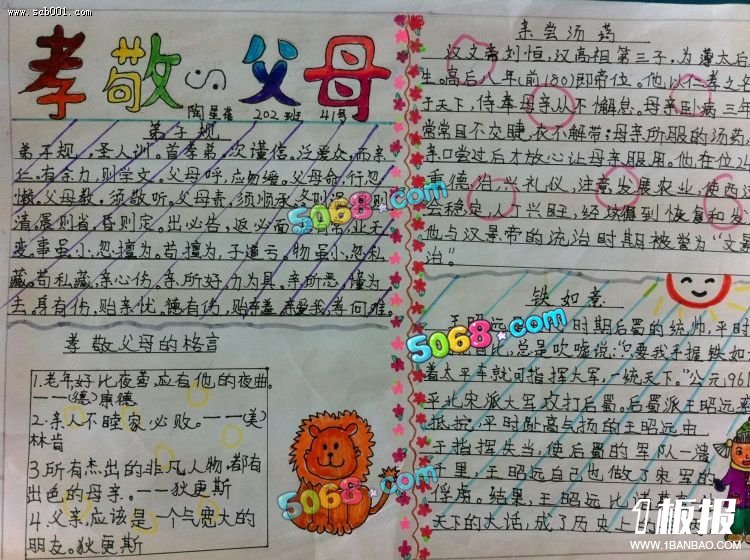 www.scb001.com
孝敬父母
陶星 202班 41号
弟子规
弟子规,圣人训。首孝弟,次谨信。泛爱众,而亲
仁。有余力,则学文。父母呼,应勿缓。父母命,行勿
懒。父母教,须敬听。父母责,须顺承。冬则温,夏则
清。晨则省,昏则定。出必告,返必面。居有常,业无
变。事虽小,勿擅为。苟擅为,子道亏。物虽小,勿私
藏。苟私藏,亲心伤。亲所好,力为具。亲所恶,谨为
去。身有伤,贻亲忧。德有伤,贻亲羞。亲爱我,孝何难。
孝敬父母的格言
1.老年好比夜莺,应有他的夜曲。
——(德)康德
2.亲人不睦家必败。——(美)
林肯
3.所有杰出的非凡人物,都有
出色的母亲。——狄更斯
4.父亲,应该是一个气宽大的
朋友。狄更斯
亲尝汤药
汉文帝刘恒,汉高祖第三子,为薄太后
生。高后八年(前180)即帝位。他以仁孝之
于天下,侍奉母亲从不懈怠。母亲卧病三年
常常目不交睫,衣不解带;母亲所服的汤药,
亲口尝过后才放心让母亲服用。他在位2
重德治,兴礼仪,注意发展农业,使西汉
会稳定,人丁兴旺,经济得到恢复和发
他与汉景帝的统治时期被誉为“文景
治”。
铁如意
王昭远 时期后蜀的统帅,平时
比,总是吹嘘说:“只要我手握铁如
着太平车就可指挥大军,一统天下。”公元961
平北宋派大军攻打后蜀。后蜀派王昭远
抵挡,平时趾高气扬的王昭远由
于指挥失当,使后蜀的军队一溃
千里,王昭远自己也做了宋军的
俘虏。结果,王昭远比
天下的大话,成了历史上
5068.com
5068.com
5068.com
1板报
WWW.1BANBAO.COM